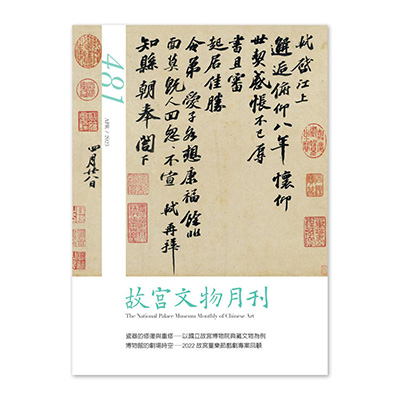 軾啟江上
邂逅俯仰八年懷仰
世契感悵不已辱
書且審
起居佳勝
令弟愛子各想康福餘非
面莫既人回忽忽不宣軾再拜
知縣朝奉閣下
四月廿八日
481
APR / 2023
故宮文物月刊
The National Palace Museum Monthly of Chinese Art
瓷器的修復與重修──以國立故宮博物院典藏文物為例
博物館的劇場時空──2022故宮童樂節戲劇專案回顧